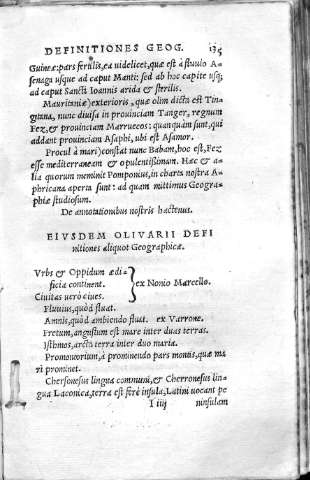 DEFINITIONES GEOG. 135
Guineæ: pars fertilis, ea videlicet, quæ est à fluvio A-
senaga usque ad caput Manti: sed ab hoc capite usq;
ad caput Sancti Ioannis arida & sterilis.
Mauritaniæ) exterioris, quæ olim dicta est Tin-
gitana, nunc divisa in provinciam Tanger, regnum
Fez, & provinciam Marruecos: quanquàm sunt, qui
addant provinciam Asaphi, ubi est Asamor.
Procul à mari) constat nunc Babam, hoc est, Fez
esse mediterraneam & opulentissimam. Hæc & a-
lia quorum meminit Pomponius, in chartis nostra A-
phricana aperta sunt: ad quam mittimus Geogra-
phiæ studiosum.
De annotationibus nostris hactenus.
EIVSDEM OLIVARII DEFI
nitiones aliquot Geographicæ.
Vrbs & Oppidum ædi-
ficia continent. ex Nonio Marcello.
Civitas verò cives.
Fluvius, quòd fluat.
Amnis, quòd ambiendo fluat. ex Varrone.
Fretum, angustum est mare inter duas terras.
Isthmos, arcta terra inter duo maria.
Promontorium, à prominendo pars montis, quæ ma
ri prominet.
Chersonesus lingua communi, & Cherronesus lin-
gua Laconica, terra est ferè insula, Latini vocant pe
I iiij ninsulam